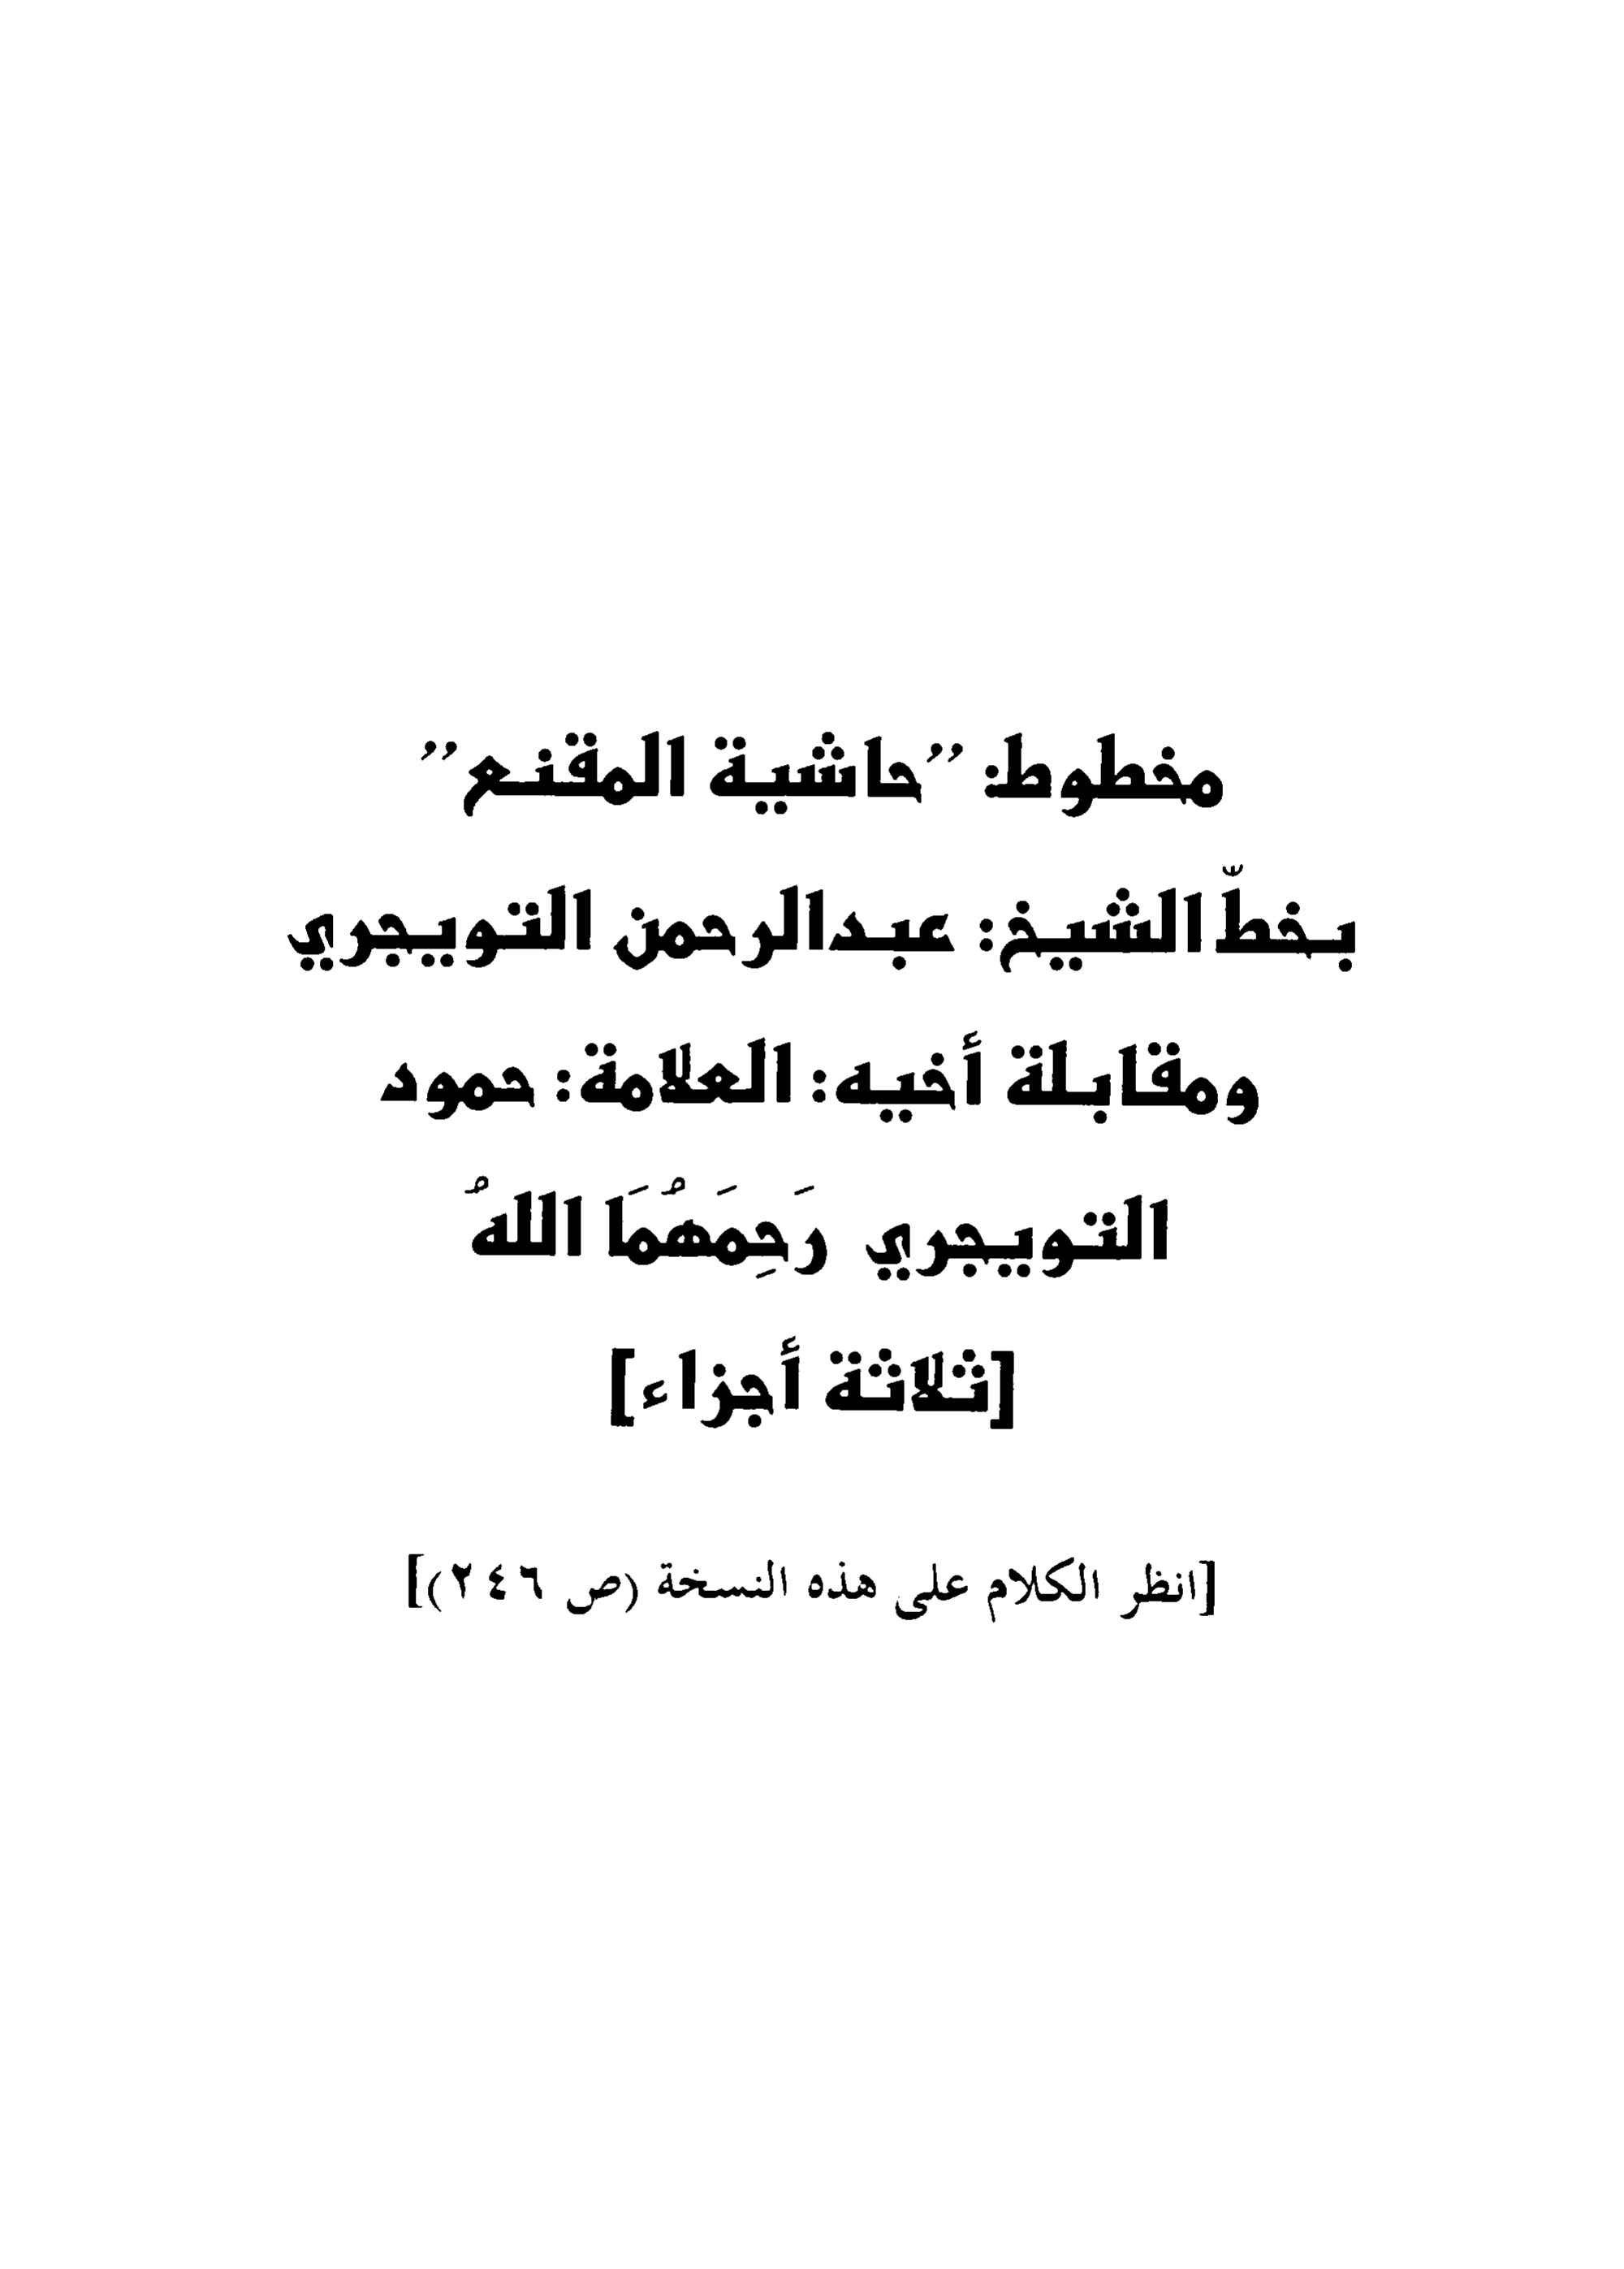 مخطوط: ”حاشية المقنع”
بخطّ الشيخ: عبدالرحمن التويجري
ومقابلة أخيه: العلامة: حمود
التويجري رَحِمَهُمَا اللهُ
[ثلاثة أجزاء]
[انظر الكلام على هذه النسخة (ص ٢٤٦)]